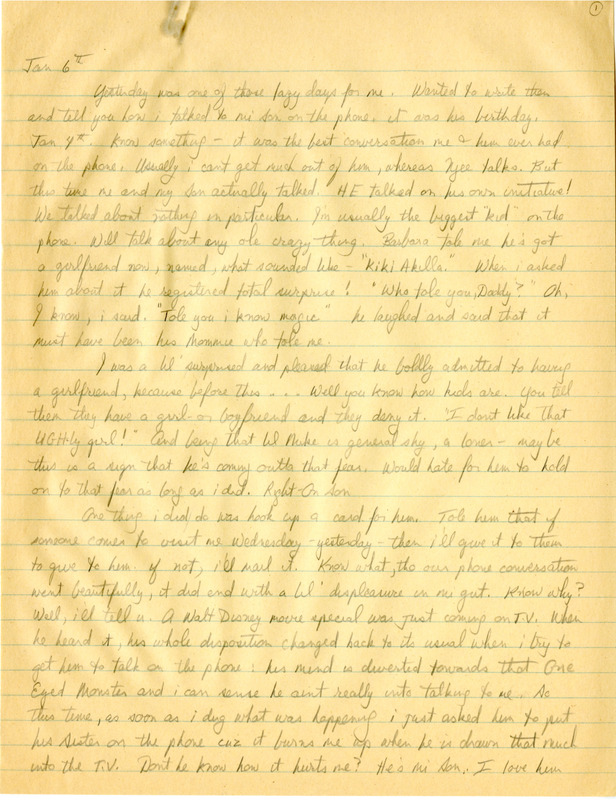 1
Jan 6th
Yesterday was one of those lazy days for me. Wanted to write then
and tell you how i talked to mi son on the phone. it was his birthday.
Jan 4th. Know something - it was the best conversation me & him ever had
on the phone. Usually i cant get much out of him, whereas Nyee talks. But
this time me and my son actually talked. HE talked on his own initiative!
We talked about nothing in particular. I'm usually the biggest "kid" on the
phone. Will talk about any ole crazy thing. Barbara tole me he's got
a girlfriend now, named, what sounded like - "Kiki Akilla." When i asked
him about it he registered total surprise! "Who tole you, Daddy?" Oh,
I know, i said. "Tole you i know magic" he laughed and said that it
must have been his Mommie who tole me.
I was a lil' surprised and pleased that he boldly admitted to having
a girlfriend, because before this . . . Well you know how kids are. You tell
them they have a girl- or boyfriend and they deny it. "I dont like that
UGHly girl!" And being that Lil Nuke is general shy, a loner - maybe
this is a sign that he's coming outta that fear. Would hate for him to hold
on to that fear as long as i did. Right-On Son
One thing i did do was hook up a card for him. Tole him that if
someone comes to visit me Wednesday - yesterday - then i'll give it to them
to give to him. if not, i'll mail it. Know what, tho our phone conversation
went beautifully, it did end with a lil' displeasure in mi gut. Know why?
Well, i'll tell u. A Walt Disney movie special was just coming on T.V. When
he heard it, his whole disposition changed back to its usual when i try to
get him to talk on the phone: his mind is diverted towards that One
Eyed Monster and i can sense he aint really into talking to me. So
this time, as soon as i dug what was happening i just asked him to put
his sister on the phone cuz it burns me up when he is drawn that much
into the T.V. Dont he know how it hurts me? He's mi Son. I love him